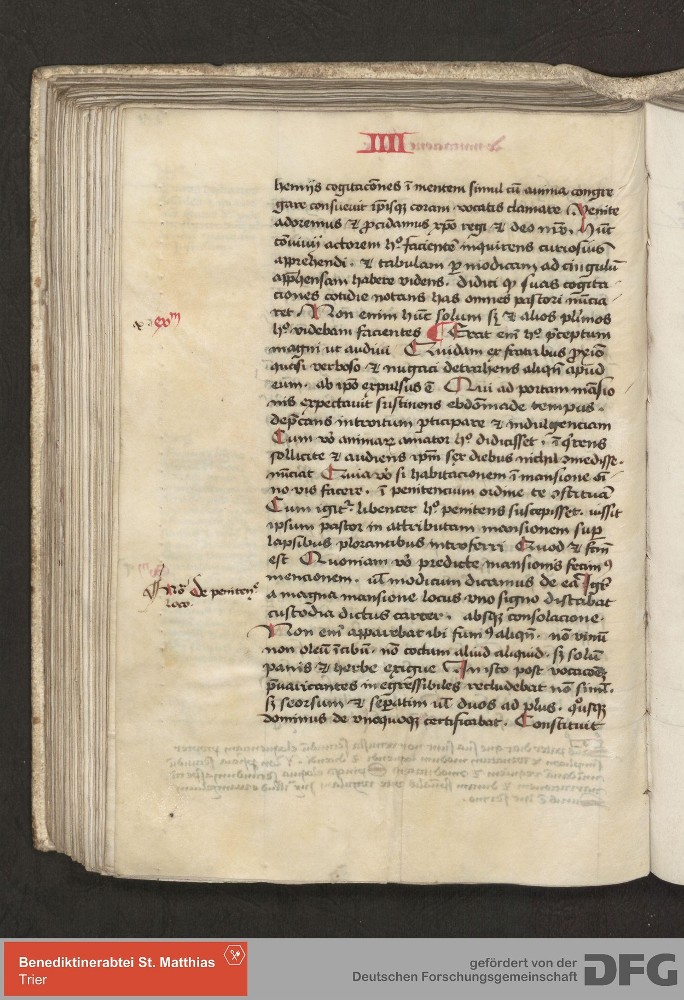 IIII
hemijs cogitacōnes ī mentem simul cū anima congre
gare consuevit ip̄isqz coram vocatis clamare Venite
adoremus et p̄cidamus xp̄o regi et deo nr̄o Hūc
cōuiuij actorem h° faciente inquirens curiosius
apprehendi · et tabulam p modicam ad cingulū
app̄hensam habere videns · didici qp suas cogita
ciones cotidie notans has omnes pastori nūcia
ret · Non enim hūc solum sz et alios pl̄imos
h° videbam facientes Erat em̄ h° p̄ceptum
magni ut audiui Quidam ex fratribus proxīo
quasi verboso et nugaci detrahens aliqn̄ apud
eum · ab ip̄o expulsus ē Qui ad portam māsio
nis expectauit sustinens ebdōmade tempus ·
dep̄cans introitum p̄ticipare et indulgenciam
Cum v° animarz amator h° didicisset · īq̄rens
sollicite et audiens ip̄m sex diebus nichil ɔmedisse ·
nūciat Quia v° si habitacionem ī mansione
no vis facere · ī penitencium ordine te ɔstituā
Cum igit̄ · libenter h° penitens suscepisset · iussit
ipsum pastor in attributam mansionem sup
lapsibus plorantibus introferri Quod et fc̄m
est Quoniam v° predicte mansionis fecim9
mencionem · ul̄ modicum dicamus de ea Igr̄
a magna mansione locus vno signo distabat
custodia dictus carcer · absqz consolacione ·
Non em̄ apparebat ibi fum9 aliqn̄ · nō vinū
non oleū ī cibū · nō coctum aliud aliquid · sz solū
panis et herbe exigue In isto post vocacōez
p̄uaricantes inegressibiles recludebat nō simł ·
sz seorsum et sep̄atim ul̄ duos ad plus · qᵒusqz
dominus de vnoquoqz certificabat · Constituit
exᵐ
De peniten
loco ·
Benediktinerabtei St. Matthias
Trier
gefördert von der
Deutschen Forschungsgemeinschaft
DFG